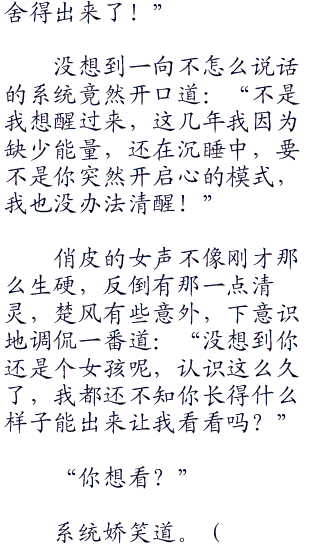 舍得出来了！”
没想到一向不怎么说话
的系统竟然开口道：“不是
我想醒过来，这几年我因为
缺少能量，还在沉睡中，要
不是你突然开启心的模式，
我也没办法清醒！”
俏皮的女声不像刚才那
么生硬，反倒有那一点清
灵，楚风有些意外，下意识
地调侃一番道：“没想到你
还是个女孩呢，认识这么久
了，我都还不知你长得什么
样子能出来让我看看吗？”
“你想看？”
系统娇笑道。（